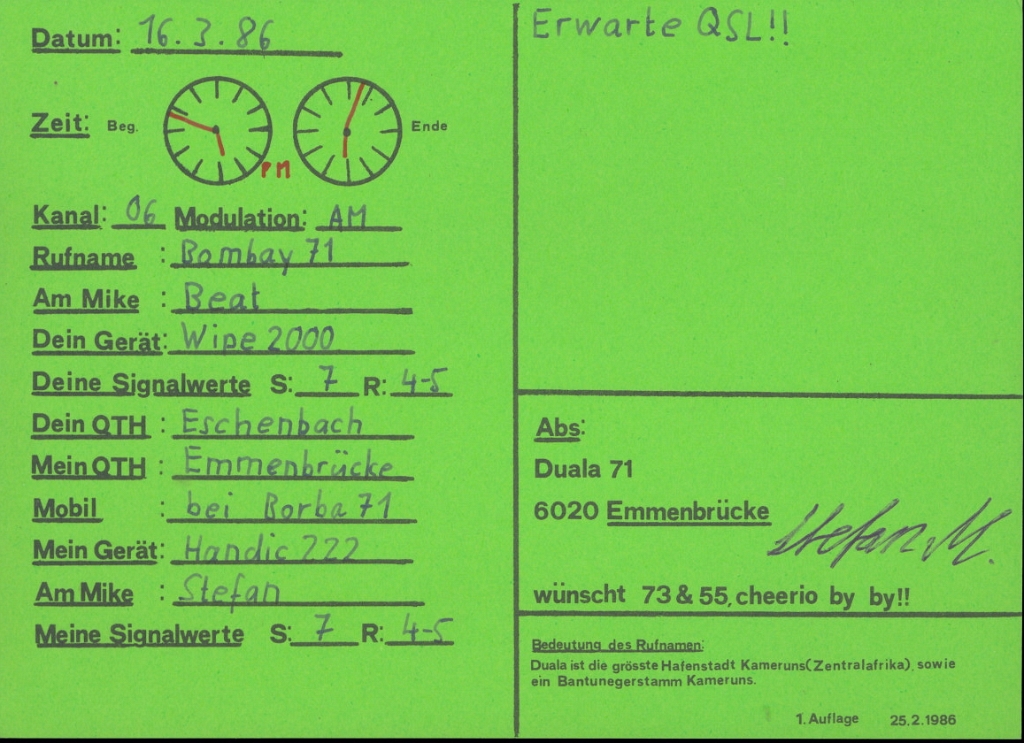 Datum: 16.3.86
Zeit: Beg. PM Ende
Kanal: 06 Modulation: AM
Rufname : Bombay 71
Am Mike : Beat
Dein Gerät: Wipe 2000
Deine Signalwerte S: 7 R: 4-5
Dein QTH : Eschenbach
Mein QTH : Emmenbrücke
Mobil : bei Borba 71
Mein Gerät: Handic 222
Am Mike : Stefan
Meine Signalwerte S: 7 R: 4-5
Erwarte QSL!!
Abs:
Duala 71
6020 Emmenbrücke
Stefan M.
wünscht 73 & 55, cheerio by by!!
Bedeutung des Rufnamen:
Duala ist die grösste Hafenstadt Kameruns(Zentralafrika), sowie
ein Bantunegerstamm Kameruns.
1. Auflage 25.2.1986